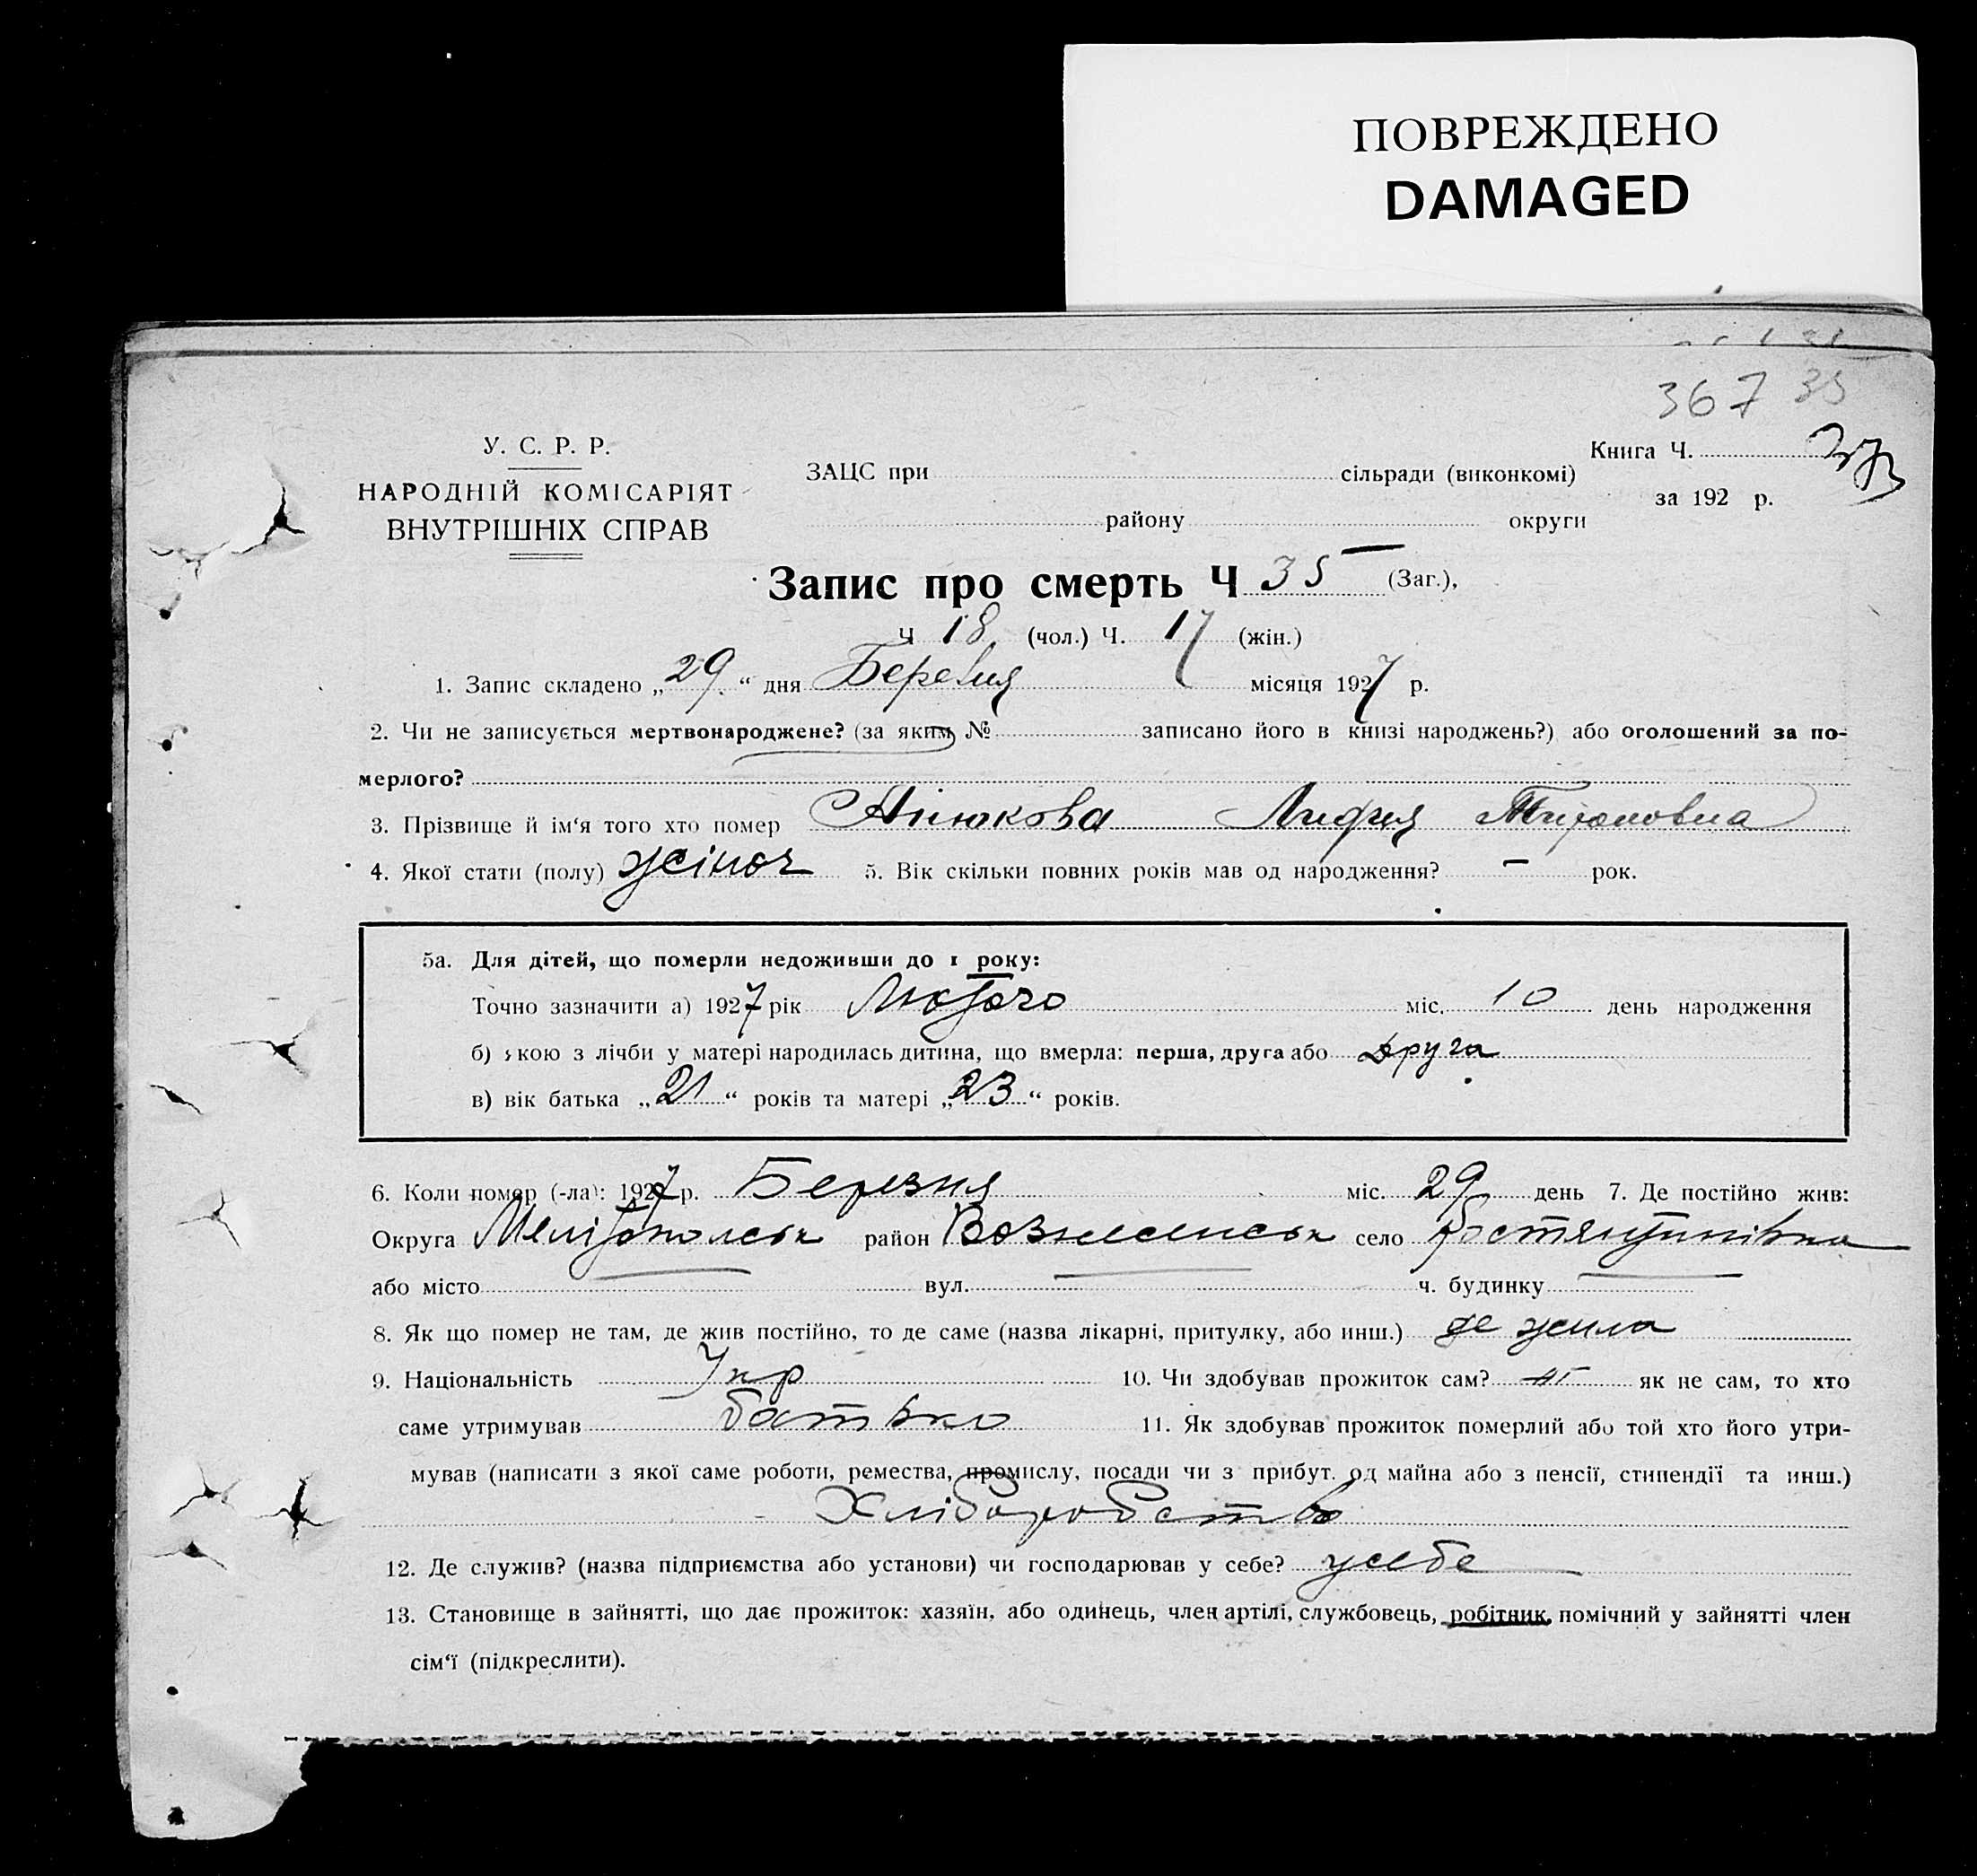 ПОВРЕЖДЕНО
DAMAGED
367 35
У. С. Р. Р.
НАРОДНІЙ КОМІСАРІЯТ
ВНУТРІШНІХ СПРАВ
ЗАЦС при сільради (виконкомі)
району округи
Книга Ч.
за 192 р.
Запис про смерть Ч 35 (Заг.),
Ч 18 (чол.) Ч. 17 (жін.)
1. Запис складено „29“ дня Березня місяця 1927 р.
2. Чи не записується мертвонароджене? (за яким № записано його в книзі народжень?) або оголошений за по-
мерлого?
3. Прізвище й ім‘я того хто помер
4. Якої стати (полу) жіноч 5. Вік скільки повних років мав од народження? — рок.
5а. Для дітей, що померли недоживши до 1 року:
Точно зазначити а) 1927 рік Лютого міс. 10 день народження
б) якою з лічби у матері народилась дитина, що вмерла: перша, друга або друга
в) вік батька „21“ років та матері „23“ років.
6. Коли помер (-ла): 1927 р. Березня міс. 29 день 7. Де постійно жив:
Округа Мелітопольськ район Вознесенськ село
або місто — вул. — ч. будинку —
8. Як що помер не там, де жив постійно, то де саме (назва лікарні, притулку, або инш.) де жила
9. Національність Укр 10. Чи здобував прожиток сам? як не сам, то хто
саме утримував батько 11. Як здобував прожиток померлий або той хто його утри-
мував (написати з якої саме роботи, ремества, промислу, посади чи з прибут. од майна або з пенсії, стипендії та инш.)
Хліборобство
12. Де служив? (назва підприємства або установи) чи господарював у себе? у себе
13. Становище в зайнятті, що дає прожиток: хазяїн, або одинець, член артілі, службовець, робітник, помічний у зайнятті член
сім‘ї (підкреслити).